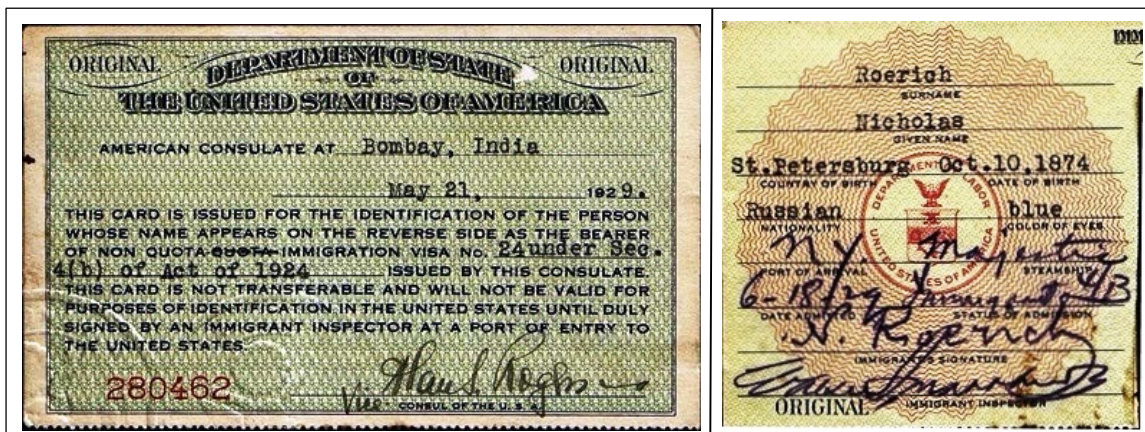 ORIGINAL DEPARTMENT OF STATE ORIGINAL
OF
THE UNITED STATES OF AMERICA
AMERICAN CONSULATE AT Bombay, India
May 21, 1929.
THIS CARD IS ISSUED FOR THE IDENTIFICATION OF THE PERSON
WHOSE NAME APPEARS ON THE REVERSE SIDE AS THE BEARER
OF NON QUOTA-QUOTA IMMIGRATION VISA No. 24under Sec.
4(b) of Act of 1924 ISSUED BY THIS CONSULATE.
THIS CARD IS NOT TRANSFERABLE AND WILL NOT BE VALID FOR
PURPOSES OF IDENTIFICATION IN THE UNITED STATES UNTIL DULY
SIGNED BY AN IMMIGRANT INSPECTOR AT A PORT OF ENTRY TO
THE UNITED STATES.
280462 Vice Rogers
CONSUL OF THE U. S. A.
Roerich
SURNAME
Nicholas
GIVEN NAME
St.Petersburg Oct.10,1874
COUNTRY OF BIRTH DATE OF BIRTH
DEPARTMENT OF LABOR
UNITED STATES OF AMERICA
Russian blue
NATIONALITY COLOR OF EYES
N.Y. Majestic
PORT OF ARRIVAL STEAMSHIP
6-18/29 Immigrant 4/B
DATE ADMITTED STATUS OF ADMISSION
N. Roerich
IMMIGRANT'S SIGNATURE
ORIGINAL IMMIGRANT INSPECTOR